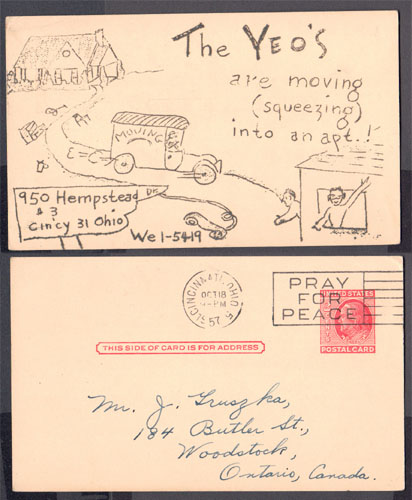 The YEO'S
are moving
(squeezing)
into an apt.!
MOVING
950 Hempstead Dr.
# 3
Cincy 31 Ohio
We 1-5419
CINCINNATI, OHIO
OCT 18
PM
57
PRAY
FOR
PEACE
UNITED STATES
POSTAL CARD
THIS SIDE OF CARD IS FOR ADDRESS
Mr. J. Gruszka,
184 Butler St.,
Woodstock,
Ontario, Canada.